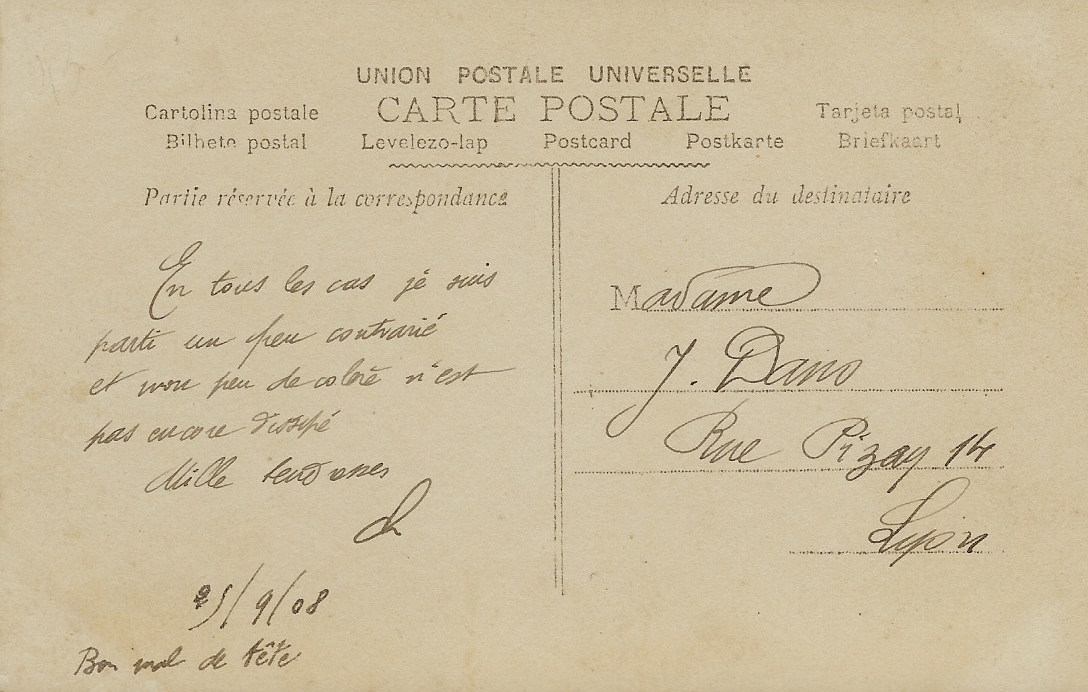 UNION POSTALE UNIVERSELLE
CARTE POSTALE
Cartolina postale
Tarjeta postal
Bilhete postal
Levelezo-lap
Postcard
Postkarte
Briefkaart
Partie réservée à la correspondance
En tous les cas je suis
parti un peu contrarié
et mon peu de colère n'est
pas encore dissipé
Mille tendresses
25/9/08
Bon mal de tête
Adresse du destinataire
Madame
J. Dano
Rue Pizay 14
Lyon